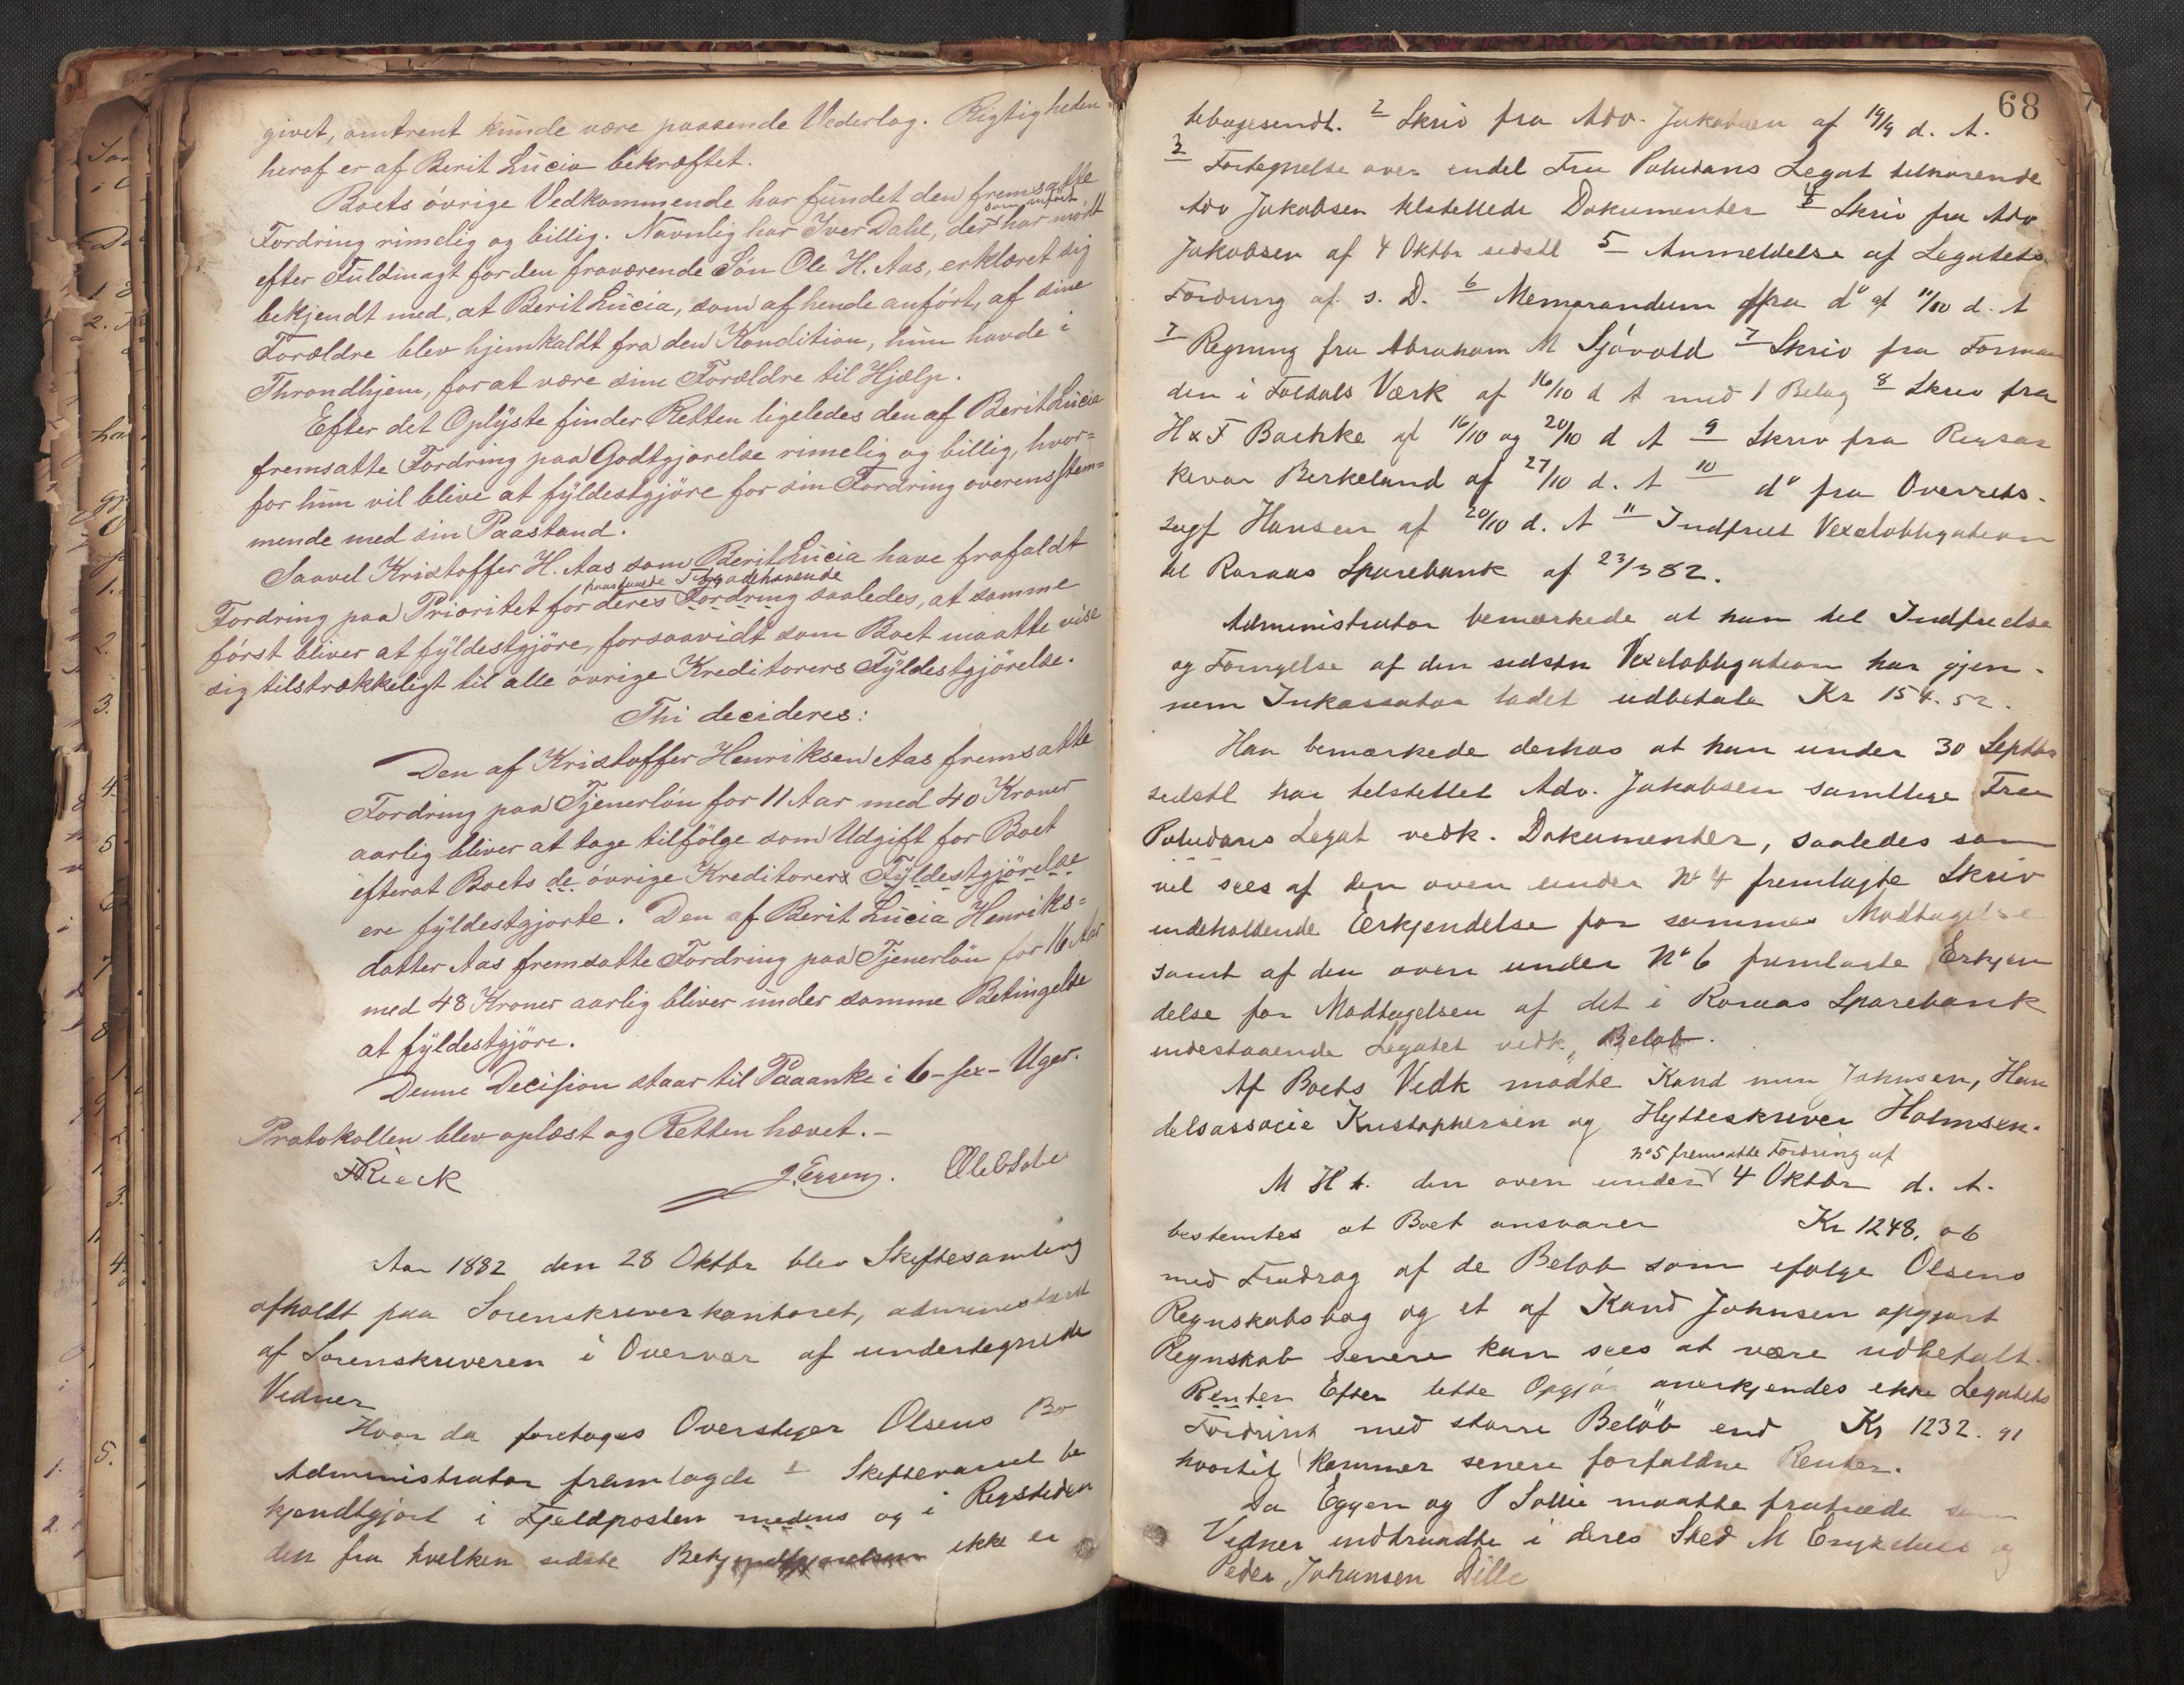 givet, omtrent kunde være passende Vederlag. Rigtigheden
heraf er af Berit Lucia bekræftet.
Boets øvrige Vedkommende har fundet den fremsatte
Fordring rimelig og billig. Navnlig har Iver Dahl, der som anført har mødt
efter Fuldmagt for den fraværende Søn Ole H. Aas, erklæret sig
bekjendt med, at Berit Lucia, som af hende anført, af sine
Forældre blev hjemkaldt fra den Kondition, hun havde i
Throndhjem, for at være sine Forældre til Hjælp.
Efter det Oplyste finder Retten ligeledes den af Berit Lucia
fremsatte Fordring paa Godtgjørelse rimelig og billig, hvor=
for hun vil blive at fyldestgjøre for sin Fordring overensstem=
mende med sin Paastand.
Saavel Kristoffer H. Aas som Berit Lucia have frafaldt
paastaaede Tilgodehavende
Fordring paa Prioritet for deres Fordring saaledes, at samme
først bliver at fyldestgjøre, forsaavidt som Boet maatte vise
sig tilstrækkeligt til alle øvrige Kreditorers Fyldestgjørelse.
Thi decideres:
Den af Kristoffer Henriksen Aas fremsatte
Fordring paa Tjenerløn for 11 Aar med 40 Kroner
aarlig bliver at tage tilfølge som Udgift for Boet
efterat Boets de øvrige Kreditorer Fyldestgjørelse
ere fyldestgjorte. Den af Berit Lucia Henriks=
datter Aas fremsatte Fordring paa Tjenerløn for 16 Aar
med 48 Kroner aarlig bliver under samme Betingelse
at fyldestgjøre.
Denne Decision staar til Paaanke i 6-sex-Uger.
Protokollen blev oplæst og Retten hævet.-
FRieck J. Eggen.
Aar 1882 den 28 Oktbr blev Skiftesamling
afholdt paa Sorenskriverkontoret, administreret
af Sorenskriveren i Overvær af undertegnede
Vidner
Hvor da foretoges Overstiger Olsens Bo
Administrator fremlagde 1 Skiftevarsel be
kjendtgjort i Fjeldposten medens og i Rigstiden
den fra hvilken sidste ikke er
68
tebagesendt. 2 Skriv fra Adv. Jakobsen af 19/9 d. A.
3 Fortegnelse over endel Fru Paludans Legat tilhørende
Adv Jakobsen tilstillede Dokumenter 4 Skriv fra Adv
Jakobsen af 4 Oktbr sidstl 5 Anmeldelse af Legatets
Fordring af s. D. 6 Memorandum fra do af 11/10 d. A
7 Regning fra Abraham M Sjøvold 7 Skriv fra Forman
den i Foldals Værk af 16/10 d A med 1 Belag 8 Skriv fra
H & F Bachke af 16/10 og 20/10 d A 9 Skriv fra
Berkeland af 27/10 d. A 10 do fra Overrets-
sagf Hansen af 20/10 d. A 11 Indfriet Vexelobligation
til Røraas Sparebank af 23/3 82.
Administrator bemærkede at han til Indfrielse
og Fornyelse af den sidstn Vexelobligation har gjen-
nem Inkassator ladet udbetale Kr 154.52.
Han bemærkede derhos at han under 30 Septbr
sidstl har tilstillet Adv. Jakobsen samtlige Fru
Paludans Legat vedk. Dokumenter, saaledes som
vil sees af den oven under No 4 fremlagte Skriv
indeholdende Erkjendelse for sammes Modtagelse
samt af den oven under No 6 fremlagte Erkjen
delse for Modtagelsen af det i Røraas Sparebank
indestaaende Legatet vedk. Beløb.
Af Boets Vedk mødte Kand min Johnsen, Han
delsassocie Kristophersen og Hytteskriver Holmsen.
No 5 fremsatte Fordring af
M H t. den oven under 4 Oktbr d. A.
bestemtes at Boet ansvarer Kr 1248,06
med Fradrag af de Beløb som ifølge Olsens
Regnskabsbog og et af Kand Johnsen opgjort
Regnskab senere kan sees at være udbetalt.
Renter Efter dette Opgjør anerkjendes ikke Legatets
Fordring med større Beløb end Kr 1232.91
hvortil kommer senere forfaldne Renter.
Da Eggen og O Sollie maatte fratræde som
Vidner indtraadte i deres Sted M Engzelius og
Peder Johansen Dille